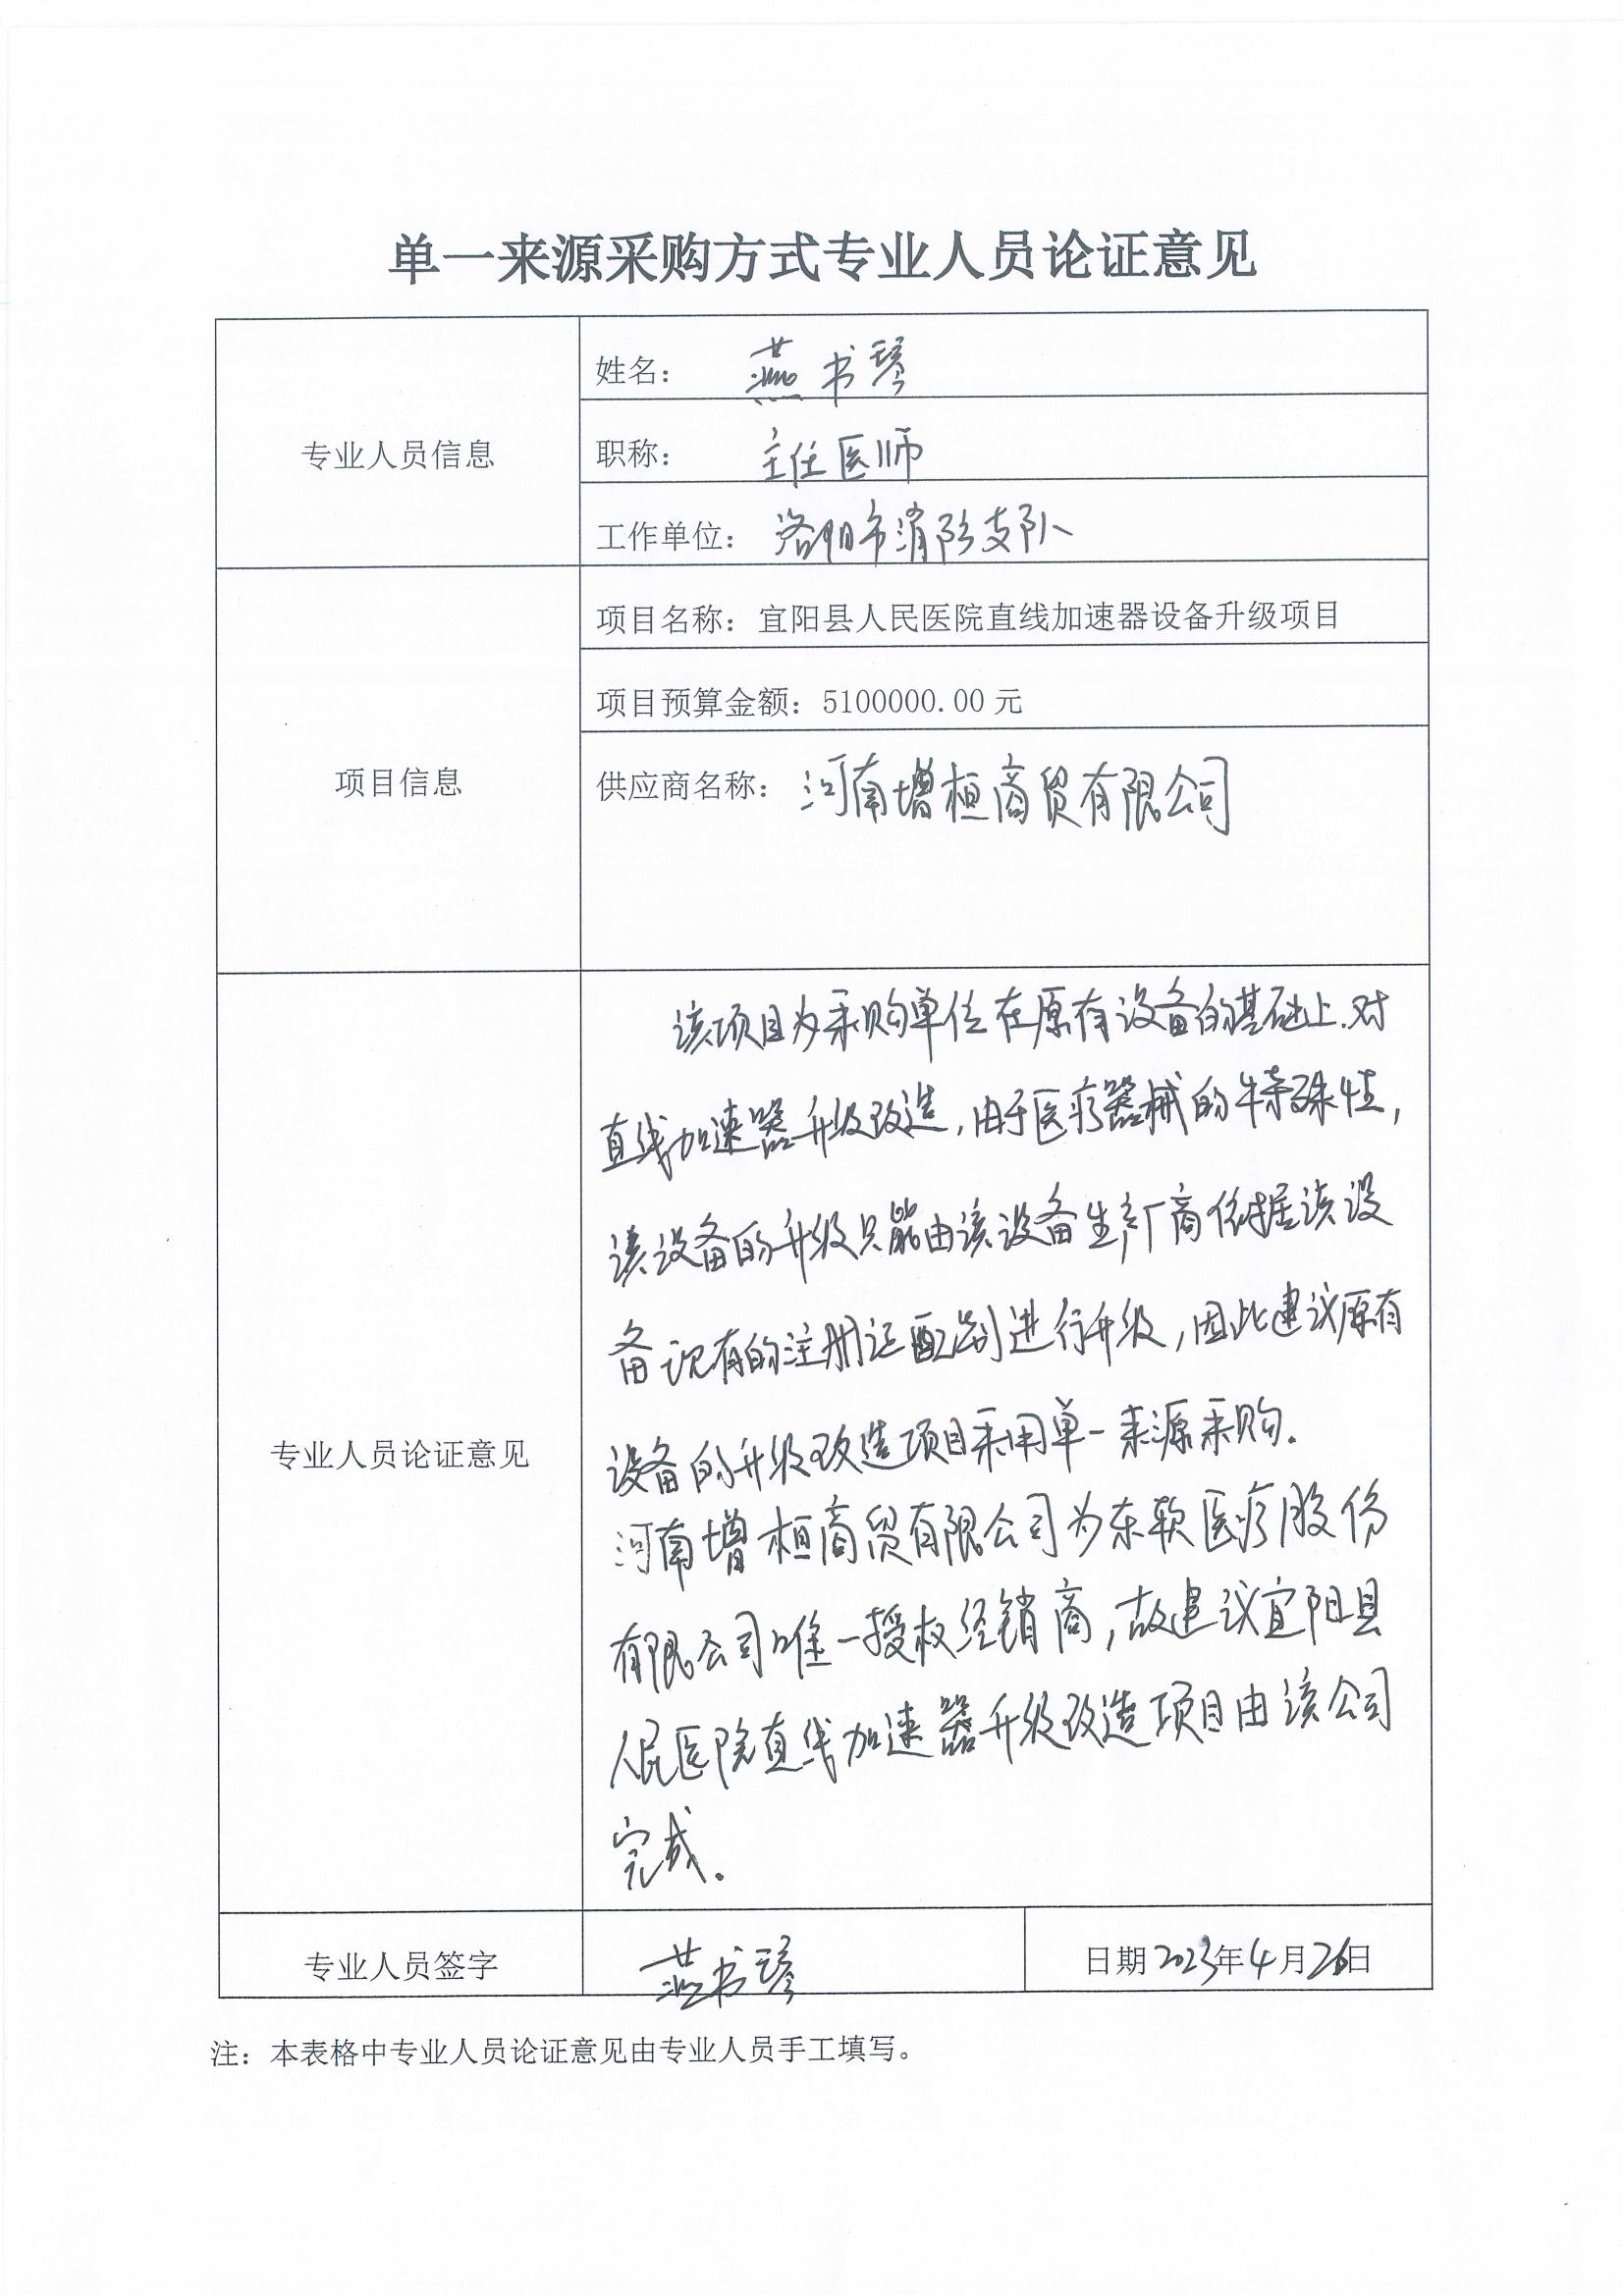 单一来源采购方式专业人员论证意见
专业人员信息
姓名： 燕书琴
职称： 主任医师
工作单位： 洛阳市消防支队
项目信息
项目名称：宜阳县人民医院直线加速器设备升级项目
项目预算金额：5100000.00 元
供应商名称： 河南增桓商贸有限公司
专业人员论证意见
该项目为采购单位在原有设备的基础上.对
直线加速器升级改造,由于医疗器械的特殊性,
该设备的升级只能由该设备生产厂商依据该设
备现有的注册证配别进行升级,因此建议原有
设备的升级改造项目采用单一来源采购.
河南增桓商贸有限公司为东软医疗股份
有限公司唯一授权经销商,故建议宜阳县
人民医院直线加速器升级改造项目由该公司
完成.
专业人员签字
燕书琴
日期 2023年4月26日
注：本表格中专业人员论证意见由专业人员手工填写。